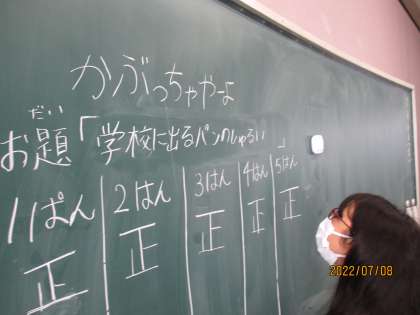 かぶっちゃやーよ
だい
お題「学校に出るパンのしゅるい」
1ぱん 2はん 3はん 4はん 5はん
正 正 正 正 正
2022/07/08